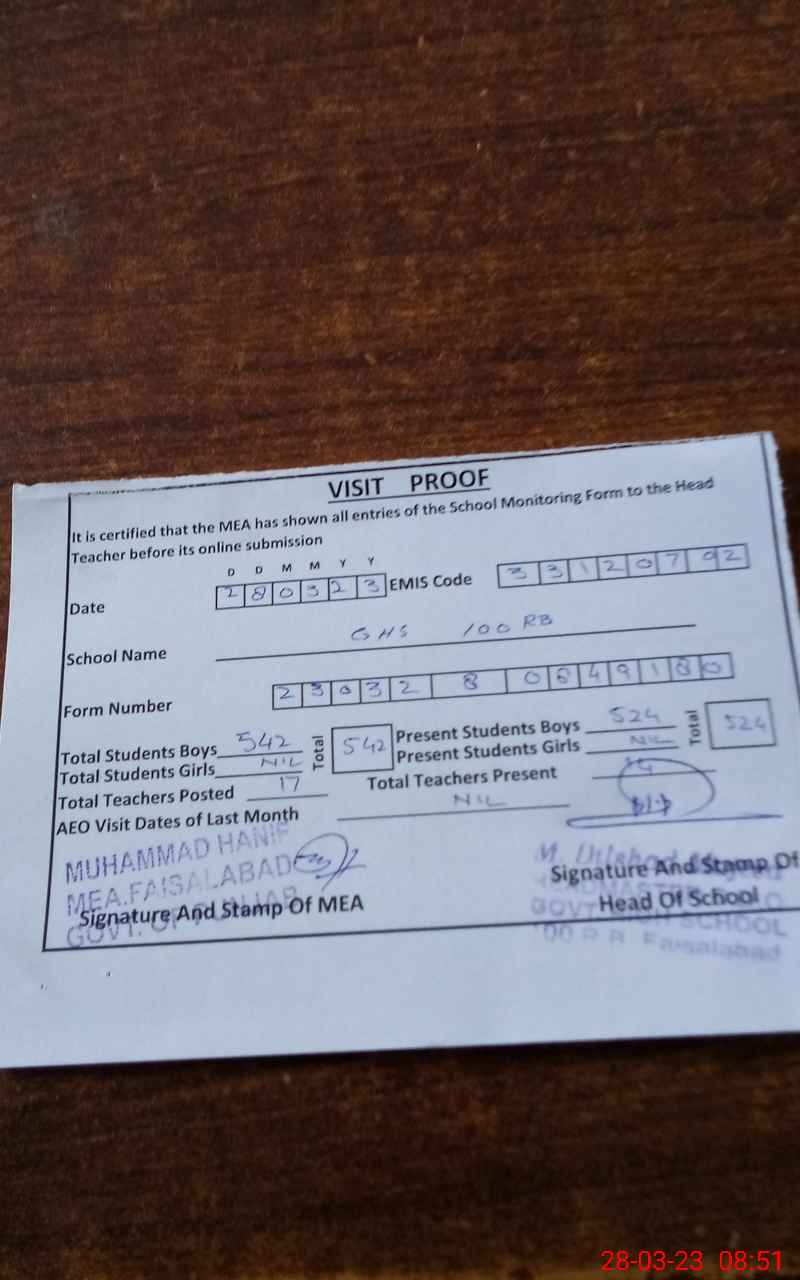 VISIT PROOF
It is certified that the MEA has shown all entries of the School Monitoring Form to the Head
Teacher before its online submission
D D M M Y Y
Date 2 8 0 3 2 3 EMIS Code 3 3 1 2 0 7 9 2
School Name GHS 100 RB
Form Number 2 3 0 3 2 8 0 6 4 9 1 8 0
Total Students Boys 542 Total 542 Present Students Boys 524 Total 524
Total Students Girls NIL Present Students Girls NIL
Total Teachers Posted 17 Total Teachers Present
AEO Visit Dates of Last Month NIL
MUHAMMAD HANIF
MEA.FAISALABAD
GOVT. OF PUNJAB
Signature And Stamp Of MEA
M. Dilshad
Signature And Stamp Of
Head Of School
GOVT HIGH SCHOOL
100 R.B. Faisalabad
28-03-23 08:51